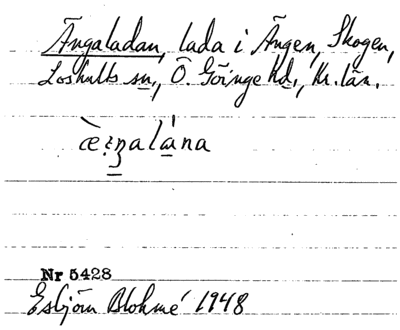 Ängaladan, lada i Ängen, Skogen,
Loshults sn., Ö. Göinge hd., Kr. län.
Nr 5428
Esbjörn Blohmé 1948